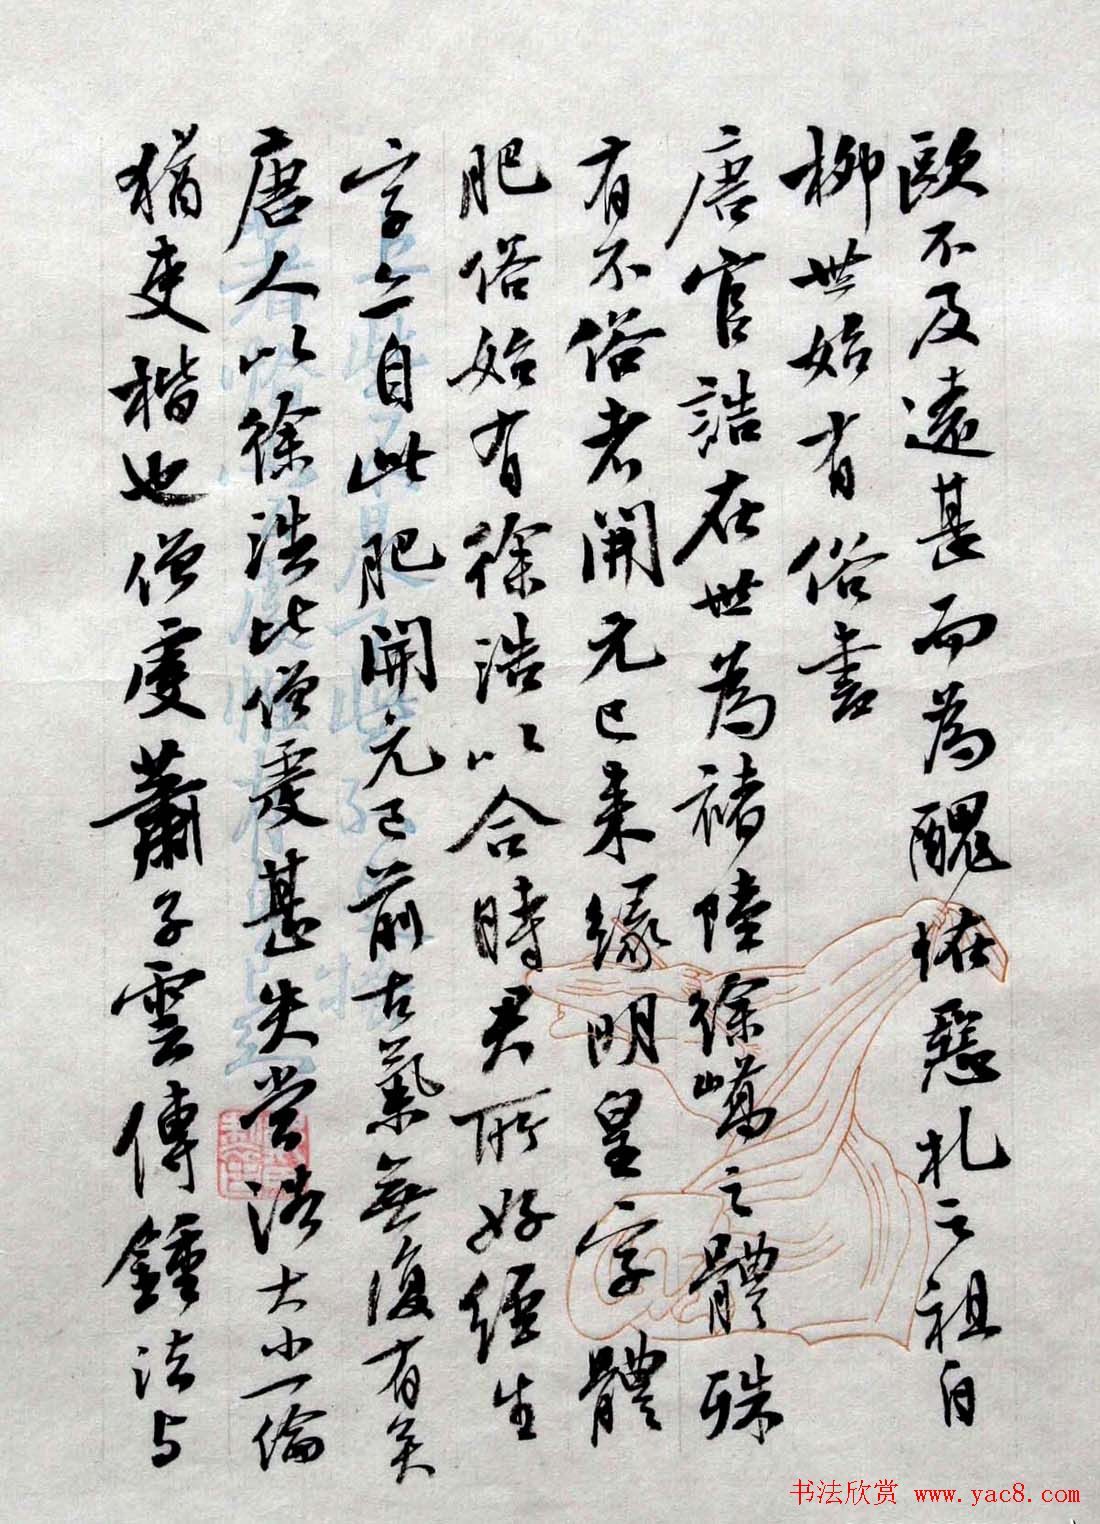 歐不及遠甚而為醜怪惡札之祖自
柳世始有俗書
唐官誥在世為褚陸徐嶠之體殊
有不俗者開元已来緣明皇字體
肥俗始有徐浩以合時君所好經生
字亦自此肥開元已前古氣無復有矣
唐人以徐浩比僧虔甚失當浩大小一倫
猶吏楷也僧虔蕭子雲傳鍾法与
书法欣赏 www.yac8.com